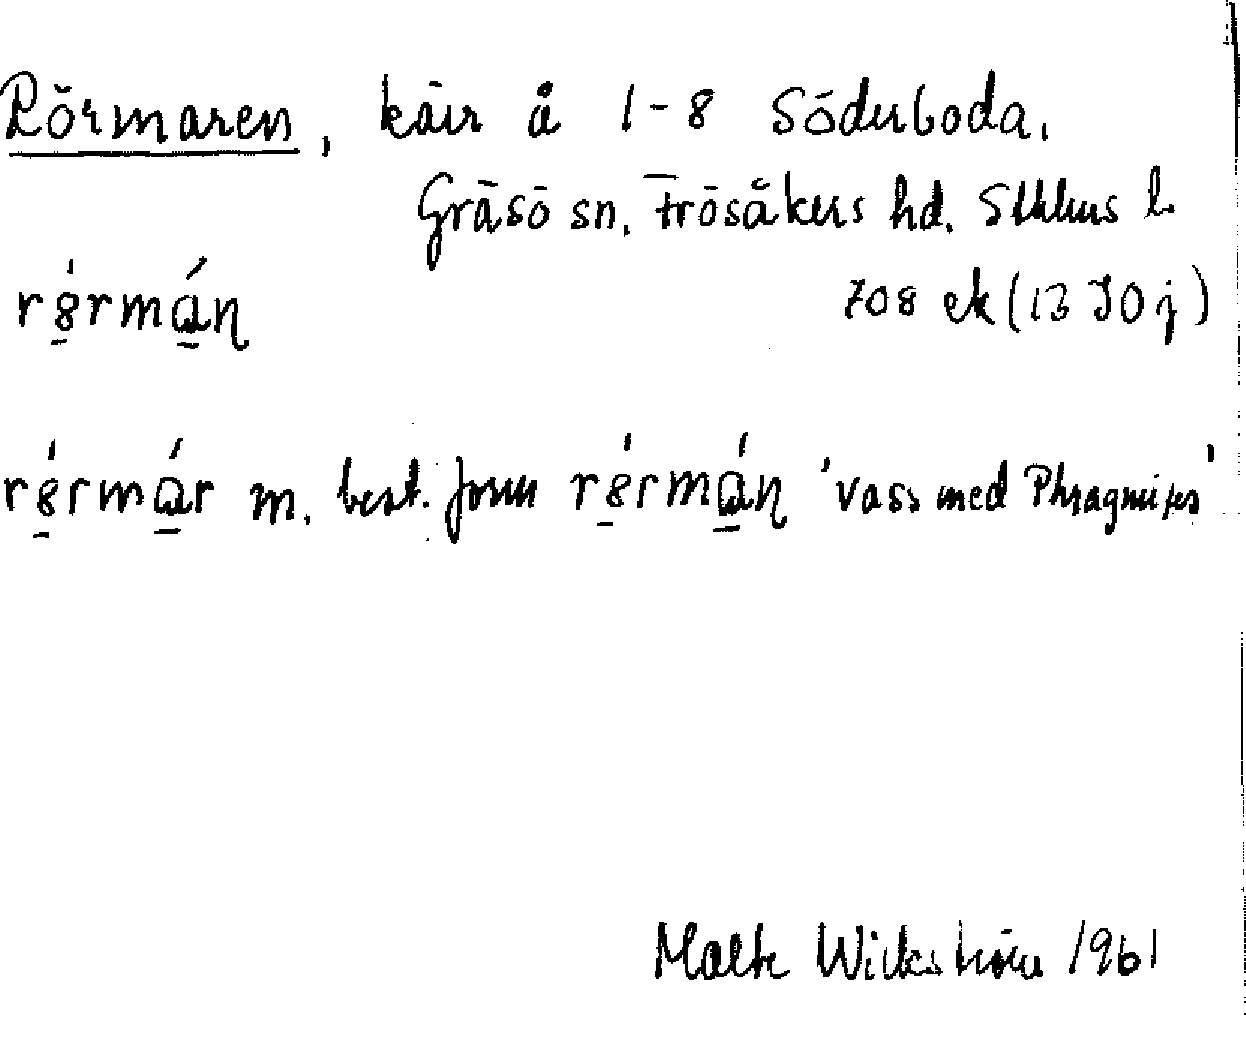 Rörmaren, kärr å 1-8 Söderboda.
Gräsö sn. Frösåkers hd. Sthlms l.
rȣ́rmáɳ 708 ek (13 I 0 j)
rȣ́rmár m. best. form rȣ́rmáɳ 'vass med Phragmites'
Malte Wickström 1961